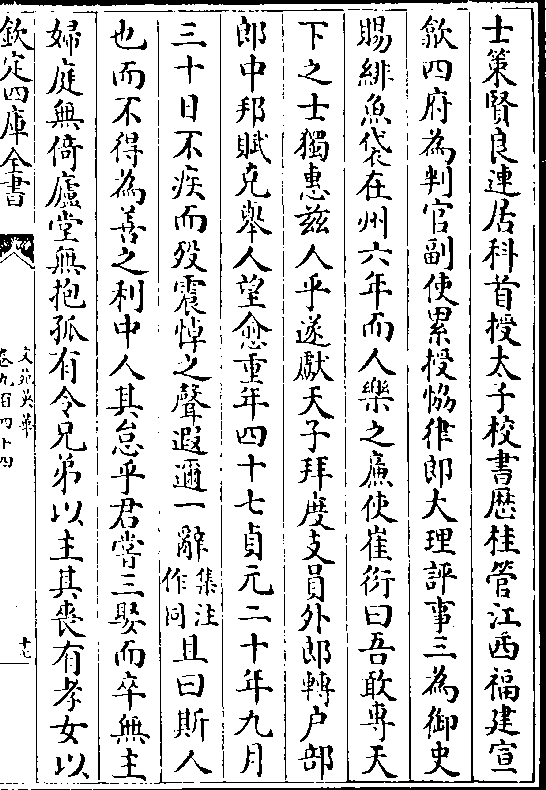 士策賢良連居科首授太子校書歴桂管江西福建宣
歙四府為判官副使累授恊律郎大理評事三為御史
賜緋魚袋在州六年而人樂之廉使崔衍曰吾敢專天
下之士獨惠兹人乎遂獻天子拜度支員外郎轉户部
郎中邦賦克舉人望愈重年四十七貞元二十年九月
三十日不疾而殁震悼之聲遐邇一辭集注作同且曰斯人
也而不得為善之利中人其怠乎君嘗三娶而卒無主
婦庭無倚廬堂無抱孤有令兄弟以主其喪有孝女以
欽定四庫全書
文苑英華
卷九百四十四
十七